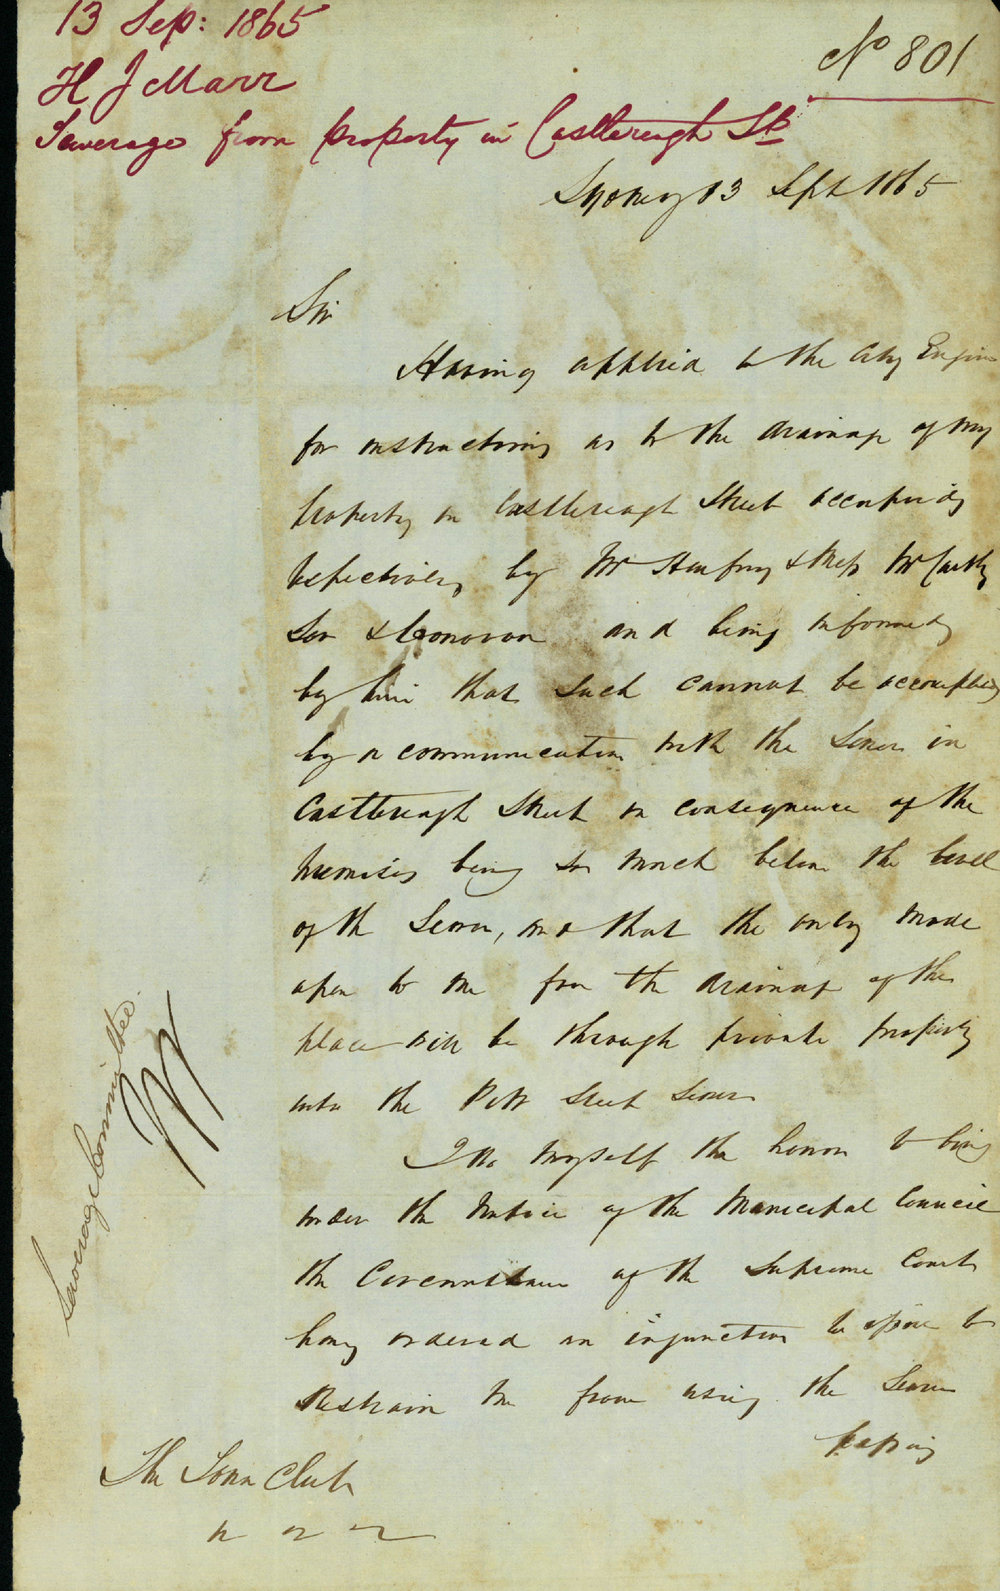 13 Sep: 1865
No 801
H J Marr
Sewerage from property in Castlereagh St
Sydney 13 Sept 1865
Sir
Having applied to the City Engin
for instructions as to the drainage of my
property in Castlereagh Street occupied
respectively by Mr & Mess McCarthy
Son & Donovan and being informed
by him that such cannot be accomplished
by a communication with the Sewer in
Castlereagh Street in consequence of the
premises being so much below the level
of the Sewer, and that the only mode
open to me for the drainage of the
place will be through private property
into the Pitt Street Sewer
I do myself the honor to bring
under the notice of the Municipal Council
the Circumstance of the Supreme Court
having ordered an injunction to issue to
restrain me from using the Sewer
passing
The Town Clerk
Sewerage Committee